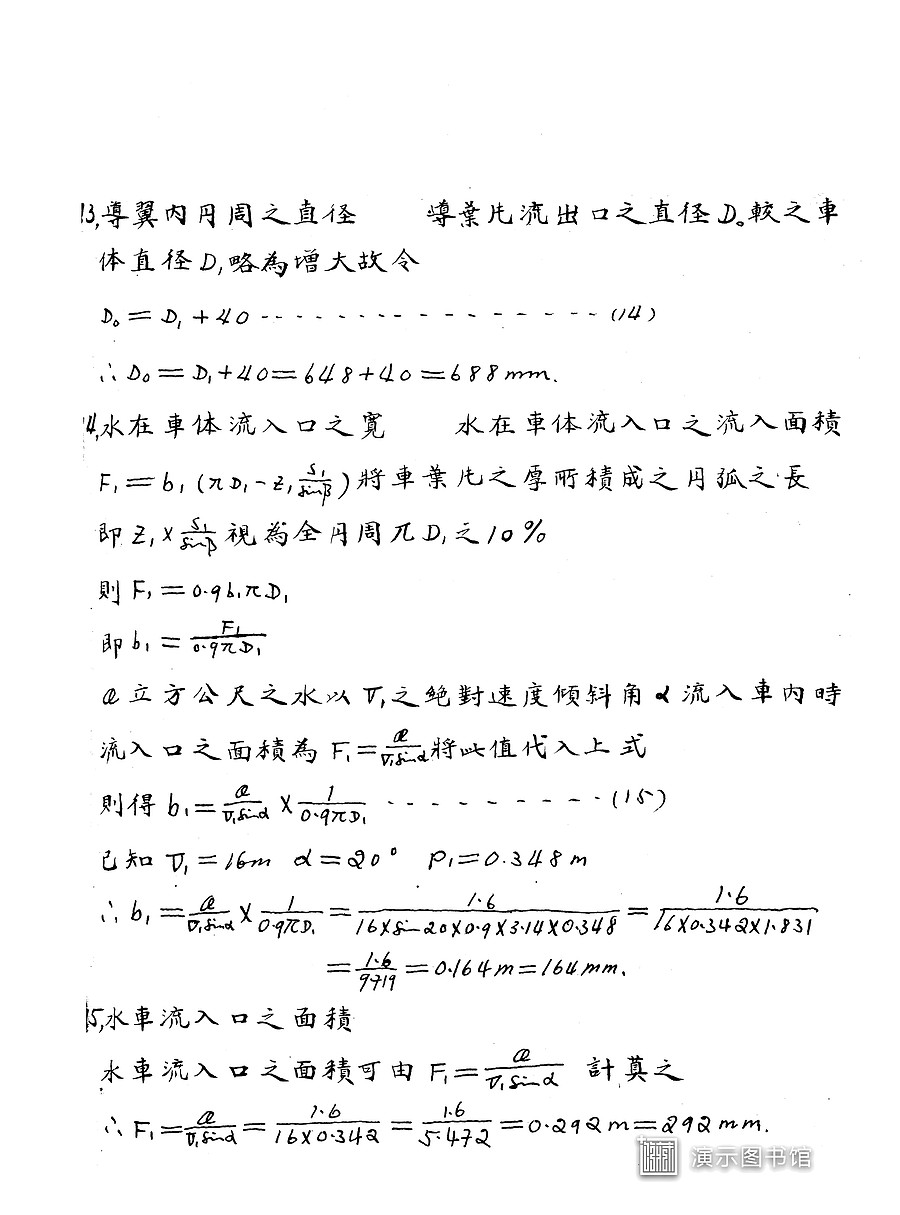 13,導翼内円周之直径　　導葉片流出口之直径D₀較之車
体直径D₁略為增大故令
D₀ = D₁ + 40 ---------------- (14)
∴ D₀ = D₁ + 40 = 648 + 40 = 688 mm.
14,水在車体流入口之寬　　水在車体流入口之流入面積
F₁ = b₁ (πD₁ - Z₁ S₁/sinβ) 將車葉片之厚所積成之円弧之長
即 Z₁ × S₁/sinβ 視為全円周πD₁之10%
則 F₁ = 0.9b₁πD₁
即 b₁ = F₁/0.9πD₁
Q立方公尺之水以V₁之絶對速度傾斜角α流入車内時
流入口之面積為 F₁ = Q/V₁sinα 將此值代入上式
則得 b₁ = Q/V₁sinα × 1/0.9πD₁ ---------- (15)
已知 V₁ = 16m α = 20° D₁ = 0.348m
∴ b₁ = Q/V₁sinα × 1/0.9πD₁ = 1.6/16×sin20×0.9×3.14×0.348 = 1.6/16×0.342×1.831
= 1.6/9.719 = 0.164m = 164mm.
15,水車流入口之面積
水車流入口之面積可由 F₁ = Q/V₁sinα 計算之
∴ F₁ = Q/V₁sinα = 1.6/16×0.342 = 1.6/5.472 = 0.292m = 292mm.
演示图书馆